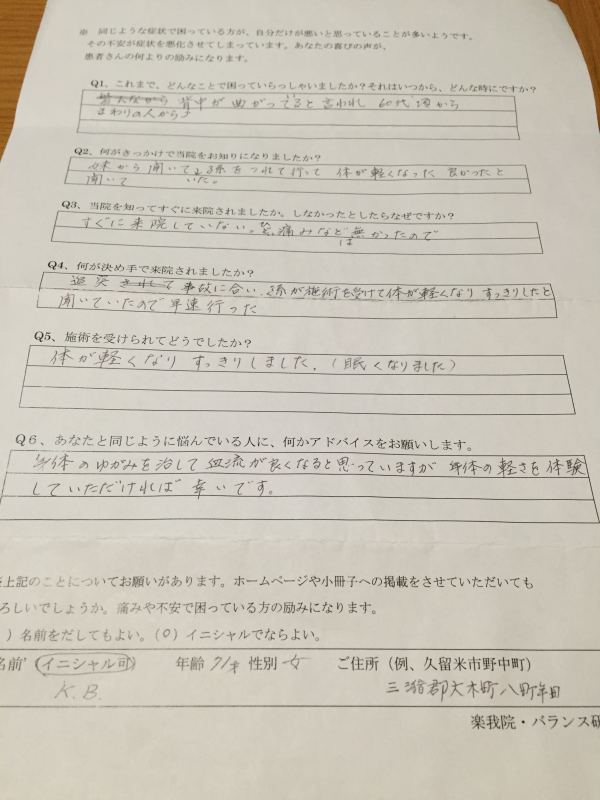 ※ 同じような症状で困っている方が、自分だけが悪いと思っていることが多いようです。
その不安が症状を悪化させてしまっています。あなたの喜びの声が、
患者さんの何よりの励みになります。
Q1、これまで、どんなことで困っていらっしゃいましたか？それはいつから、どんな時にですか？
背中が曲がってると言われ 60代頃から
まわりの人から
Q2、何がきっかけで当院をお知りになりましたか？
妹から聞いて 孫をつれて行って 体が軽くなった 良かったと
聞いて いた。
Q3、当院を知ってすぐに来院されましたか。しなかったとしたらなぜですか？
すぐに来院していない。 痛みなど無かったので
は
Q4、何が決め手で来院されましたか？
追突されて事故に合い、孫が施術を受けて体が軽くなり すっきりしたと
聞いていたので早速行った
Q5、施術を受けられてどうでしたか？
体が軽くなり すっきりしました。（眠くなりました）
Q６、あなたと同じように悩んでいる人に、何かアドバイスをお願いします。
身体のゆがみを治して血流が良くなると思っていますが 身体の軽さを体験
していただければ 幸いです。
上記のことについてお願いがあります。ホームページや小冊子への掲載をさせていただいても
ろしいでしょうか。痛みや不安で困っている方の励みになります。
）名前をだしてもよい。（○）イニシャルでならよい。
名前 イニシャル可 年齢 71才 性別 女 ご住所（例、久留米市野中町）
K.B. 三潴郡大木町八町牟田
楽我院・バランス研